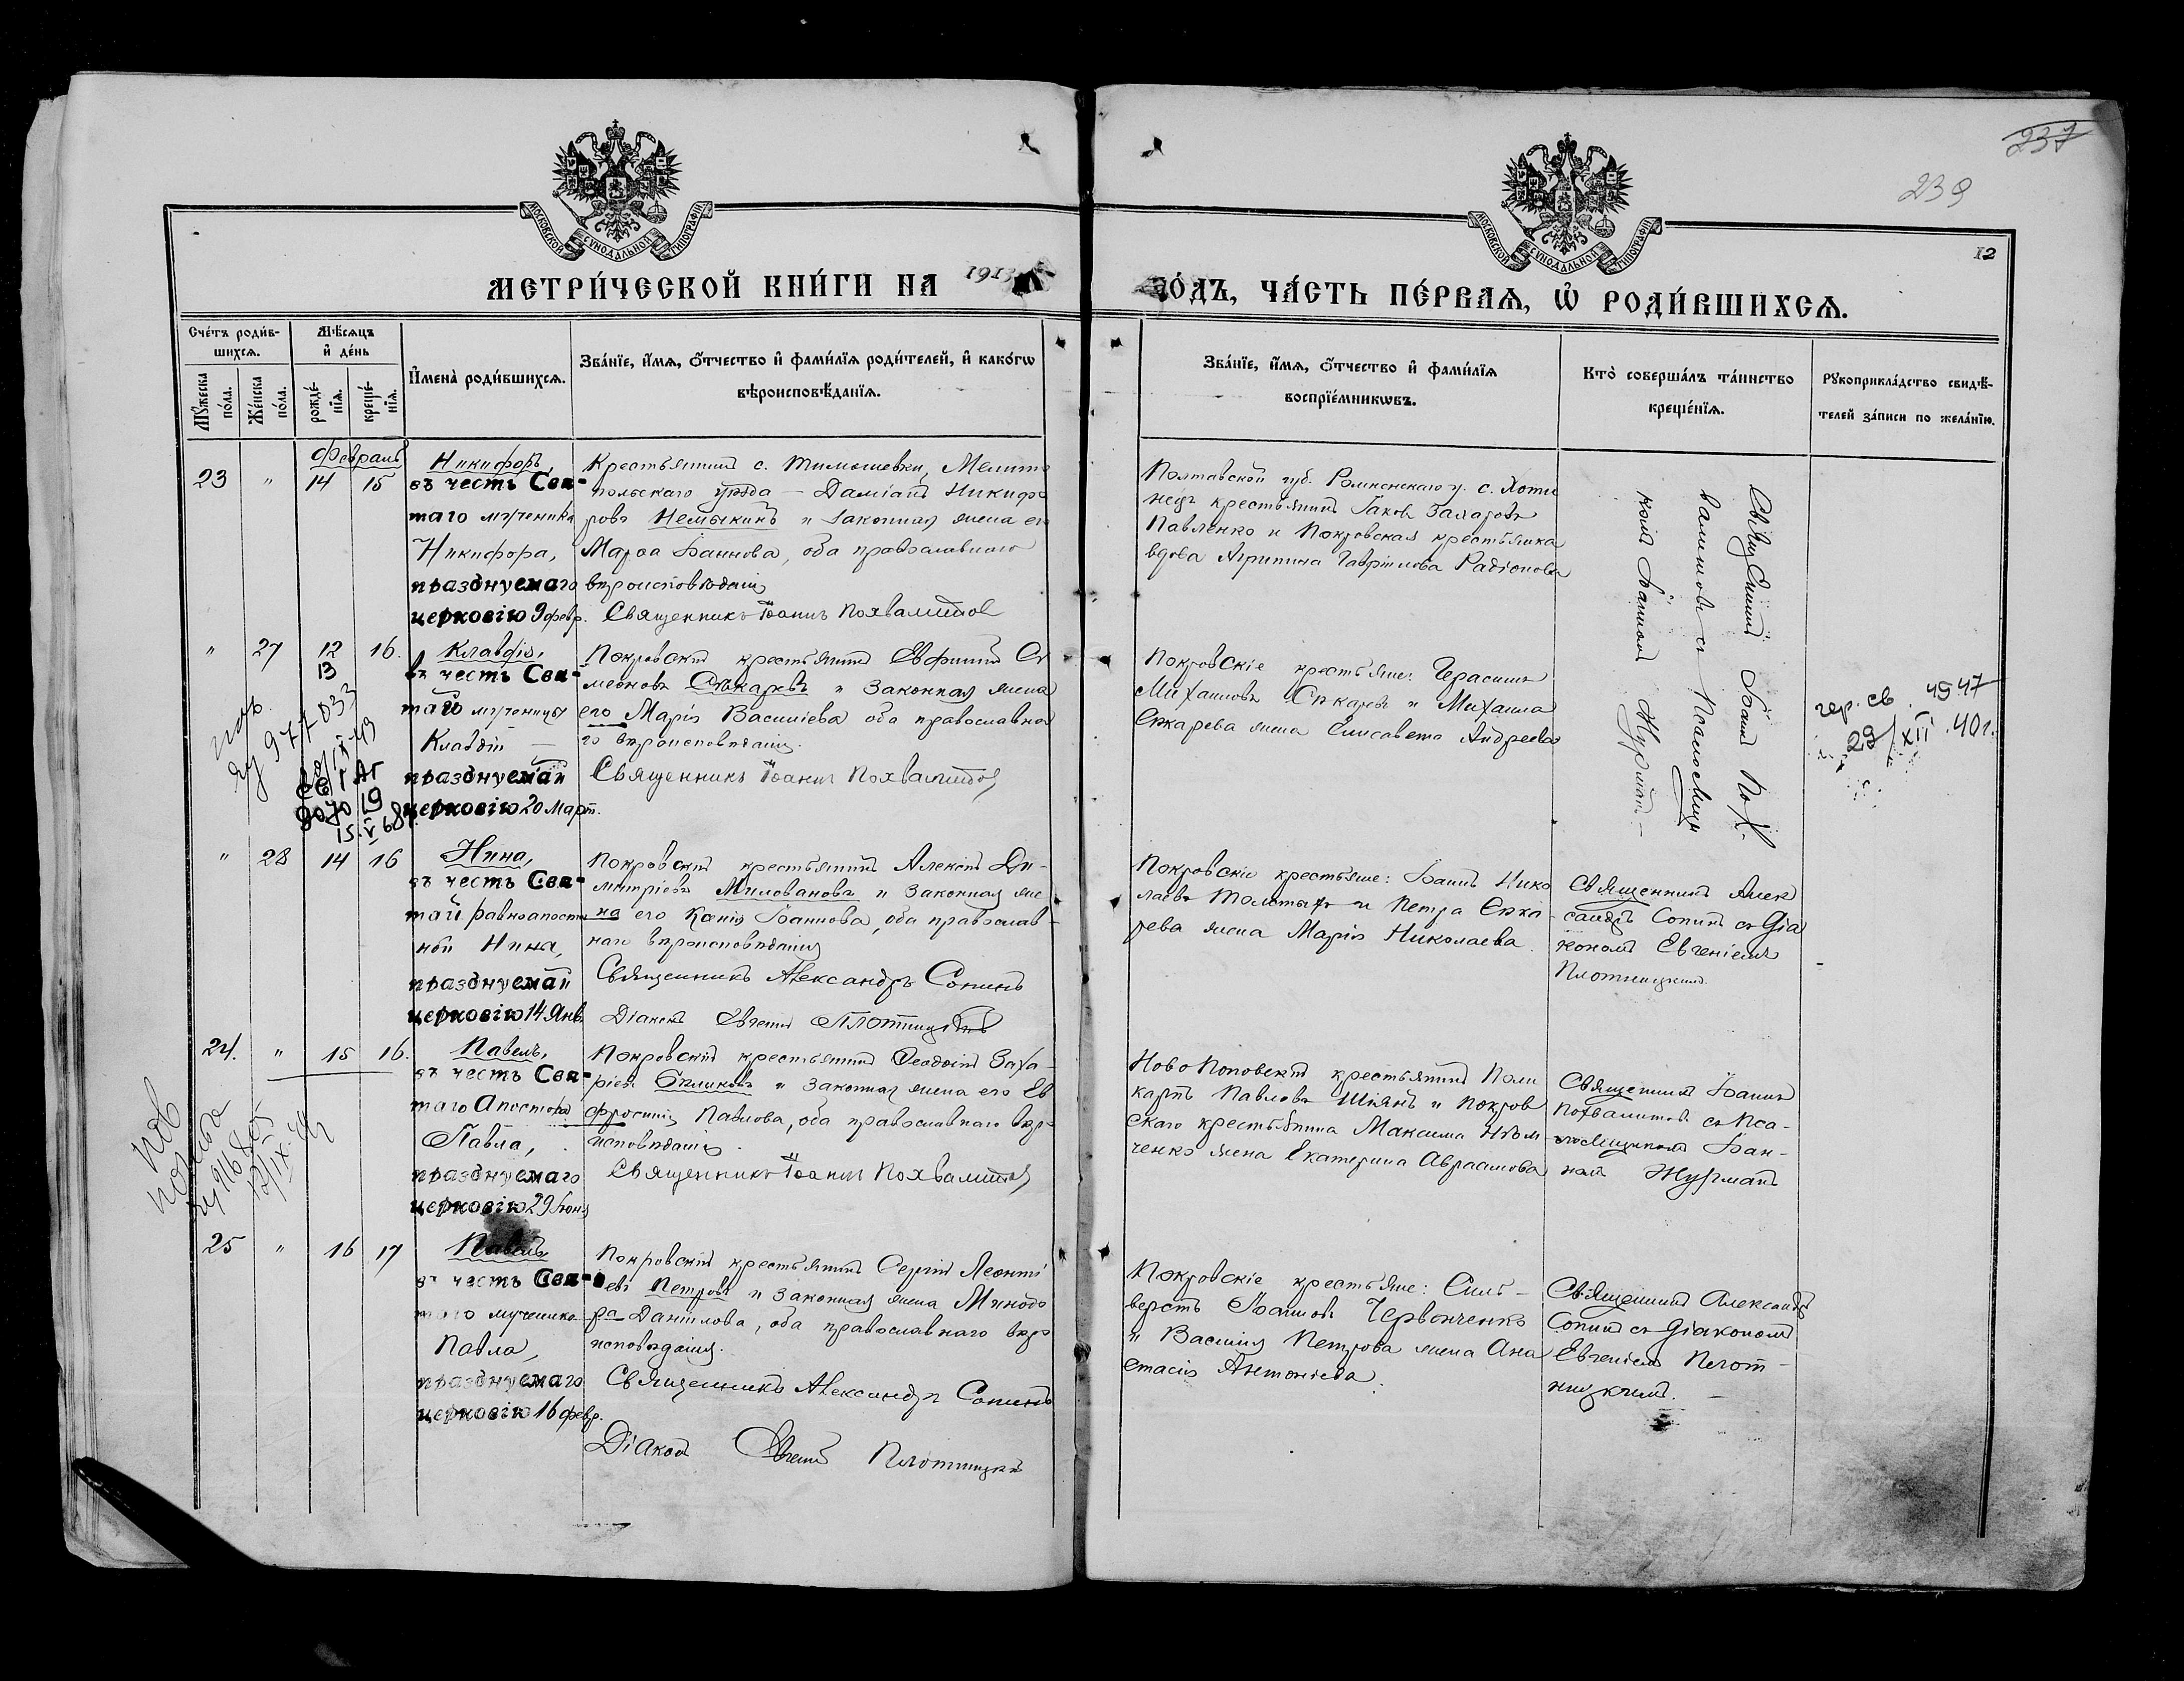 237
239
12
МОСКОВСКОЙ СѴНОДАЛЬНОЙ ТИПОГРАФІИ
МОСКОВСКОЙ СѴНОДАЛЬНОЙ ТИПОГРАФІИ
МЕТРИ́ЧЕСКОЙ КНИ́ГИ НА 1913
ГО́ДЪ, ЧА́СТЬ ПЕ́РВАЯ, Ѡ҆ РОДИ́ВШИХСЯ.
Сче́тъ роди́в-
шихся.
Мѣ́сяцъ
и҆ де́нь
Му́жеска по́ла.
Же́нска по́ла.
рожде́-
нїя.
креще́-
нїя.
И҆мена̀ роди́вшихся.
Зва́нїе, и҆́мя, ѻ҆́тчество и҆ фами́лїя роди́телей, и҆ како́гѡ
вѣроисповѣ́данїя.
Зва́нїе, и҆́мя, ѻ҆́тчество и҆ фами́лїя
воспрїе́мникѡвъ.
Кто̀ соверша́лъ та́инство
креще́нїя.
Рукоприкла́дство свидѣ́-
телей за́писи по жела́нїю.
Февраль
23 " 14 15
Никифоръ,
въ честь Свя-
таго мученика
Никифора,
празднуемаго
церковію 9 февр.
Крестьянинъ с. Тимошевки, Мелито
польскаго уѣзда - Даміанъ Никифо
ровъ Немыкинъ и законная жена его
Марфа Іоаннова, оба православнаго
вѣроисповѣданія
Священникъ Іоаннъ Похвалитовъ
Полтавской губ. Роменскаго у. с. Хоти
нецъ крестьянинъ Іаковъ Захаровъ
Павленко и Покровская крестьянка
вдова Агрипина Гавріилова Радіонова
Священникъ Іоаннъ Пох
валитовъ съ Псаломщи
комъ Іоанномъ Журманъ -
" 27 12 16.
13
Клавдія,
въ честь Свя-
той мученицы
Клавдіи -
празднуемой
церковію 20 Март.
Покровскій крестьянинъ Евфимій Си
меоновъ Сѣкаревъ и законная жена
его Марія Василіева оба православна
го вѣроисповѣданія.
Священникъ Іоаннъ Похвалитовъ
Покровскіе крестьяне: Герасимъ
Михаиловъ Сѣкаревъ и Михаила
Сѣкарева жена Елисавета Андреева
гер. св. 4947
29/XII.40 г.
977033
15.V 68
" 28 14 16
Нина,
въ честь Свя-
той равноапостоль
ной Нина,
празднуемой
церковію 14 Янв.
Покровскій крестьянинъ Алексій Ди-
митріевъ Миловановъ и законная же
на его Ксенія Іоаннова, оба православ-
наго вѣроисповѣданія
Священникъ Александръ Сопинъ
Діаконъ Евгеній Плотницкій
Покровскіе крестьяне: Іоаннъ Нико
лаевъ Толстыхъ и Петра Сѣка-
рева жена Марія Николаева.
Священникъ Алек
сандръ Сопинъ съ Діа
кономъ Евгеніемъ
Плотницкимъ.
24. " 15 16.
Павелъ,
въ честь Свя-
таго Апостола
Павла,
празднуемаго
церковію 29 Іюня
Покровскій крестьянинъ Феодосій Заха-
ріевъ и законная жена его Ев
фросинія Павлова, оба православнаго вѣро
исповѣданія.
Священникъ Іоаннъ Похвалитовъ
Ново Поповскій крестьянинъ Поли
карпъ Павловъ Шіянъ и Покров
скаго крестьянина Максима Нѣм-
ченко жена Екатерина Авраамова
Священникъ Іоаннъ
Похвалитовъ съ Пса-
ломщикомъ Іоан-
номъ Журманъ
25 " 16 17
Павелъ,
въ честь Свя-
таго мученика
Павла,
празднуемаго
церковію 16 февр.
Покровскій крестьянинъ Сергій Леонті
евъ Петровъ и законная жена Минодо
ра Даніилова, оба православнаго вѣро
исповѣданія.
Священникъ Александръ Сопинъ
Діаконъ Евгеній Плотницкій
Покровскіе крестьяне: Силь-
верстъ Іоанновъ Червонченко
и Василія Петрова жена Ана
стасія Антоніева.
Священникъ Александръ
Сопинъ съ Діакономъ
Евгеніемъ Плот-
ницкимъ. -